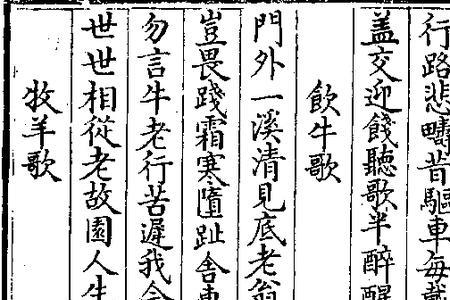 行路悲疇昔驅車每載
盖交迎餞聽歌半醉醒
飲牛歌
門外一溪清見底老翁
豈畏踐霜寒墮趾舍車
勿言牛老行苦遲我今
世世相從老故園人生
牧羊歌